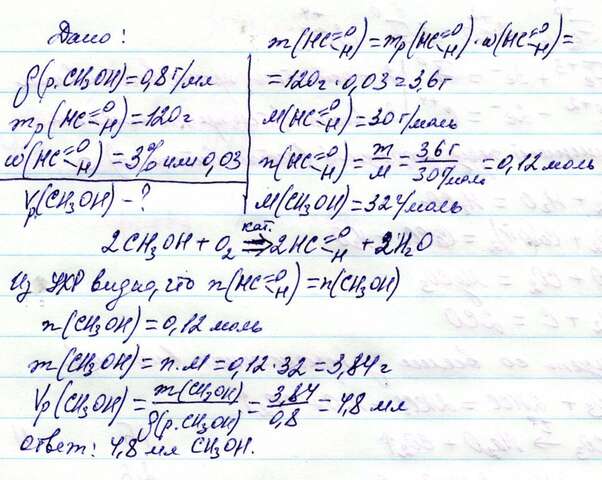 Дано:
ρ(р.CH₃OH)=0,8г/мл
mр(HC=O-H)=120г
ω(HC=O-H)=3% или 0,03
Vр(CH₃OH)-?
m(HC=O-H)=mр(HC=O-H)·ω(HC=O-H)=
=120г·0,03=3,6г
M(HC=O-H)=30г/моль
n(HC=O-H)=m/M=3,6г/30г/моль=0,12моль
M(CH₃OH)=32г/моль
кат.
2CH₃OH+O₂⇒2HC=O-H+2H₂O
Из УХР видно, что n(HC=O-H)=n(CH₃OH)
n(CH₃OH)=0,12моль
m(CH₃OH)=n.M=0,12·32=3,84г
Vр(CH₃OH)=m(CH₃OH)/ρ(р.CH₃OH)=3,84/0,8=4,8мл
Ответ: 4,8 мл CH₃OH.